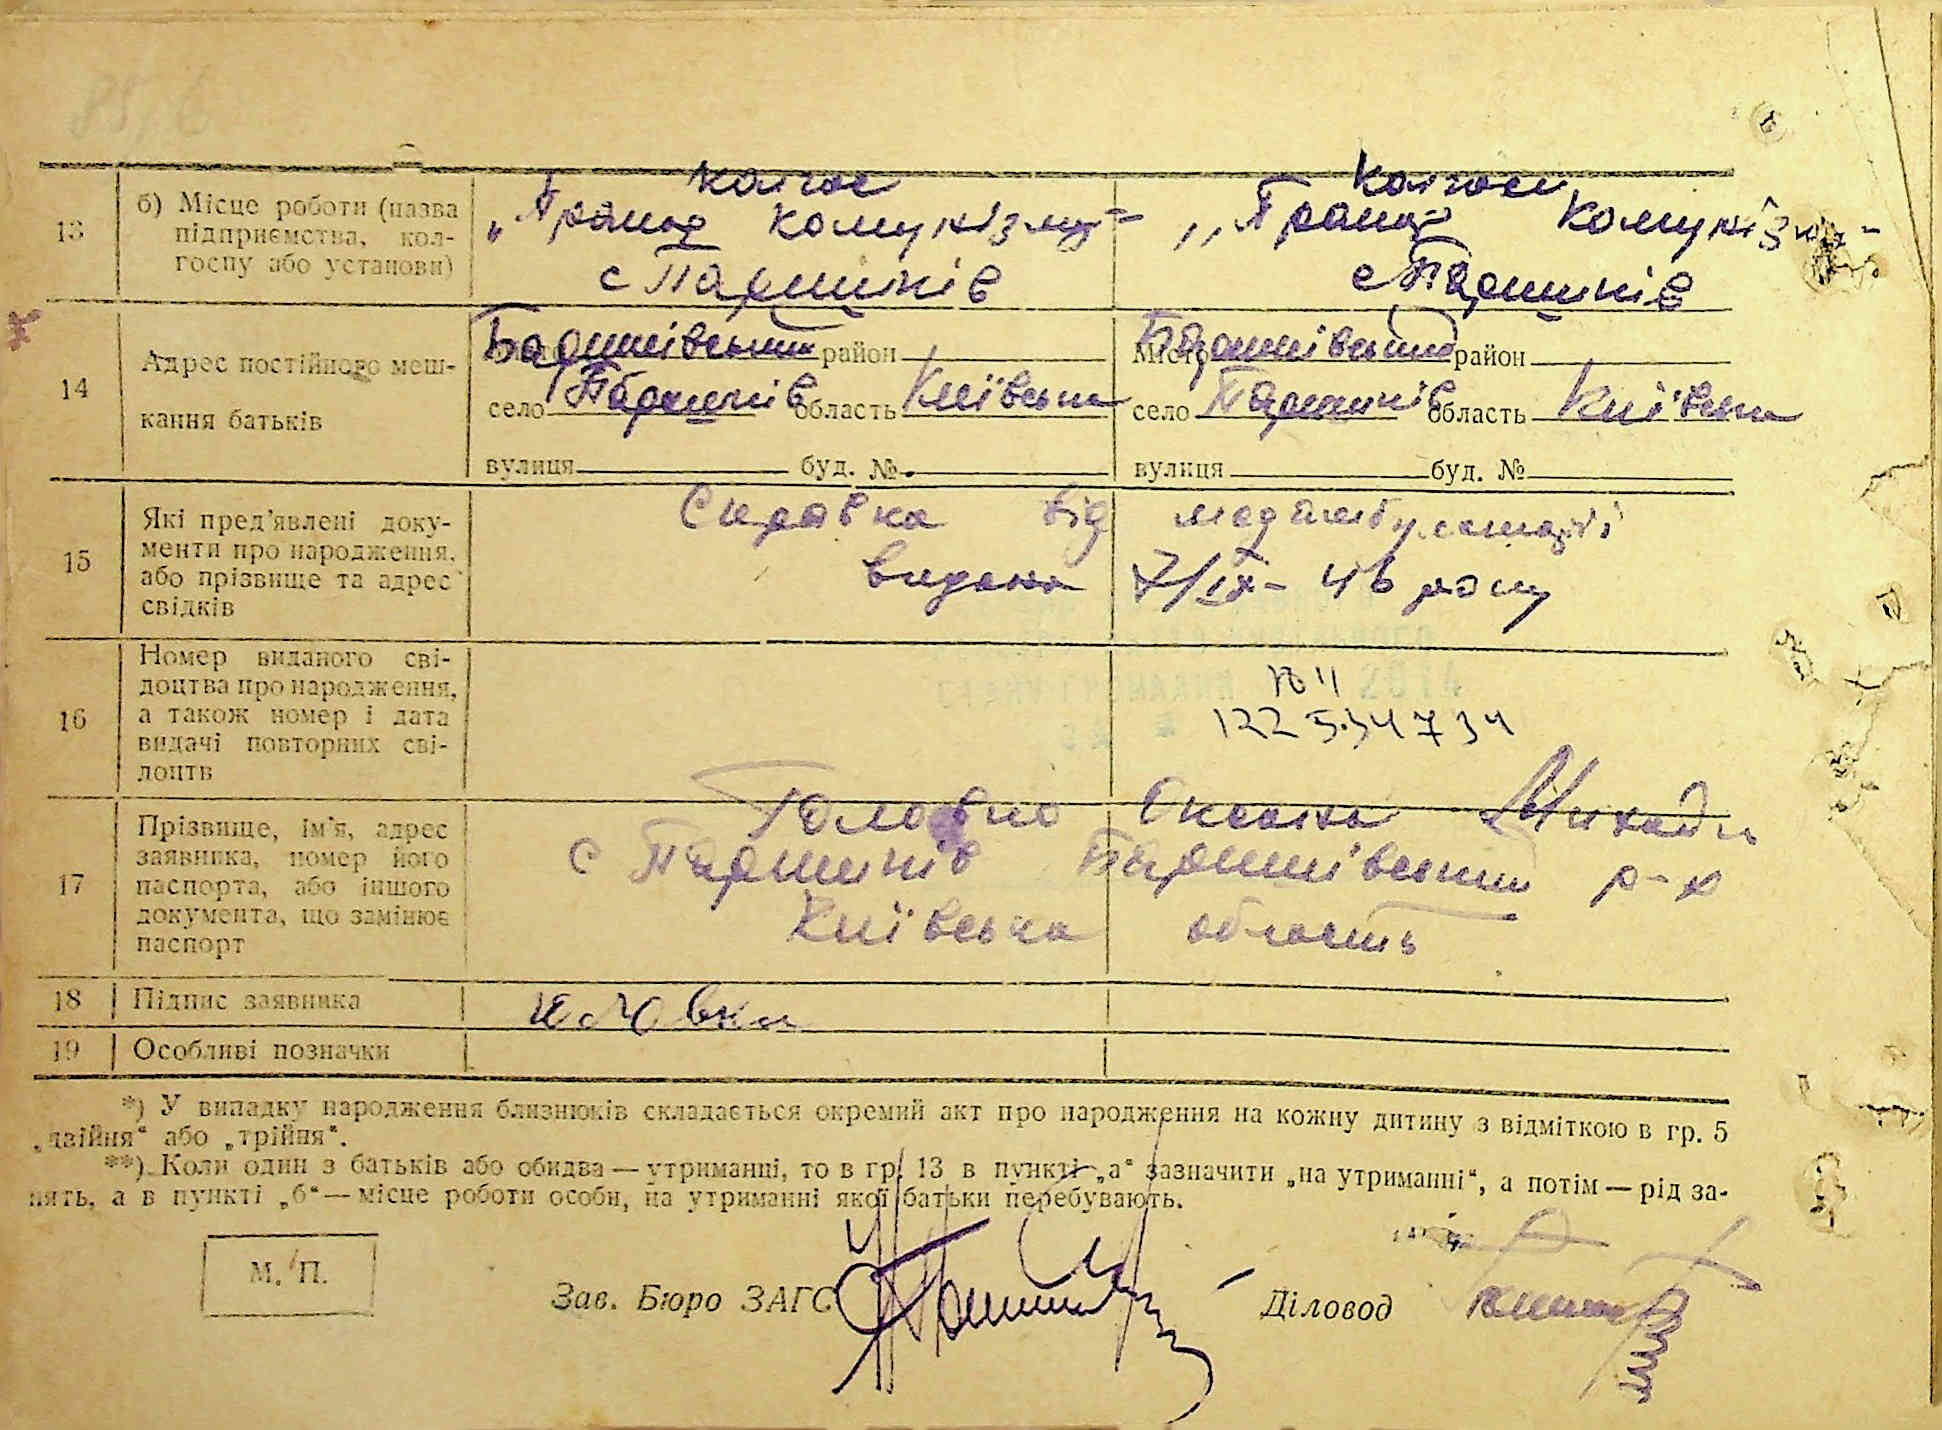 13
б) Місце роботи (назва
підприємства, кол-
госпу або установи)
колгос
„Прапор комунізму"
с Паришків
колгосп
„Прапор комунізму"
с Паришків
14
Адрес постійного меш-
кання батьків
Баришівський район
село Паришків область Київська
вулиця буд. №
місто Баришівський район
село Паришків область Київська
вулиця буд. №
15
Які пред'явлені доку-
менти про народження,
або прізвище та адрес
свідків
Справка від медамбулаторії
видана 7/IX- 46 року
16
Номер виданого сві-
доцтва про народження,
а також номер і дата
видачі повторних сві-
доцтв
2014
17
Прізвище, ім'я, адрес
заявника, номер його
паспорта, або іншого
документа, що замінює
паспорт
Головко Оксана
с Паришків Баришівський р-н
Київська область
18
Підпис заявника
19
Особливі позначки
*) У випадку народження близнюків складається окремий акт про народження на кожну дитину з відміткою в гр. 5
„двійня" або „трійня".
**) Коли один з батьків або обидва — утриманці, то в гр. 13 в пункті „а" зазначити „на утриманні", а потім — рід за-
нять, а в пункті „б" — місце роботи особи, на утриманні якої батьки перебувають.
М. П.
Зав. Бюро ЗАГС
Діловод